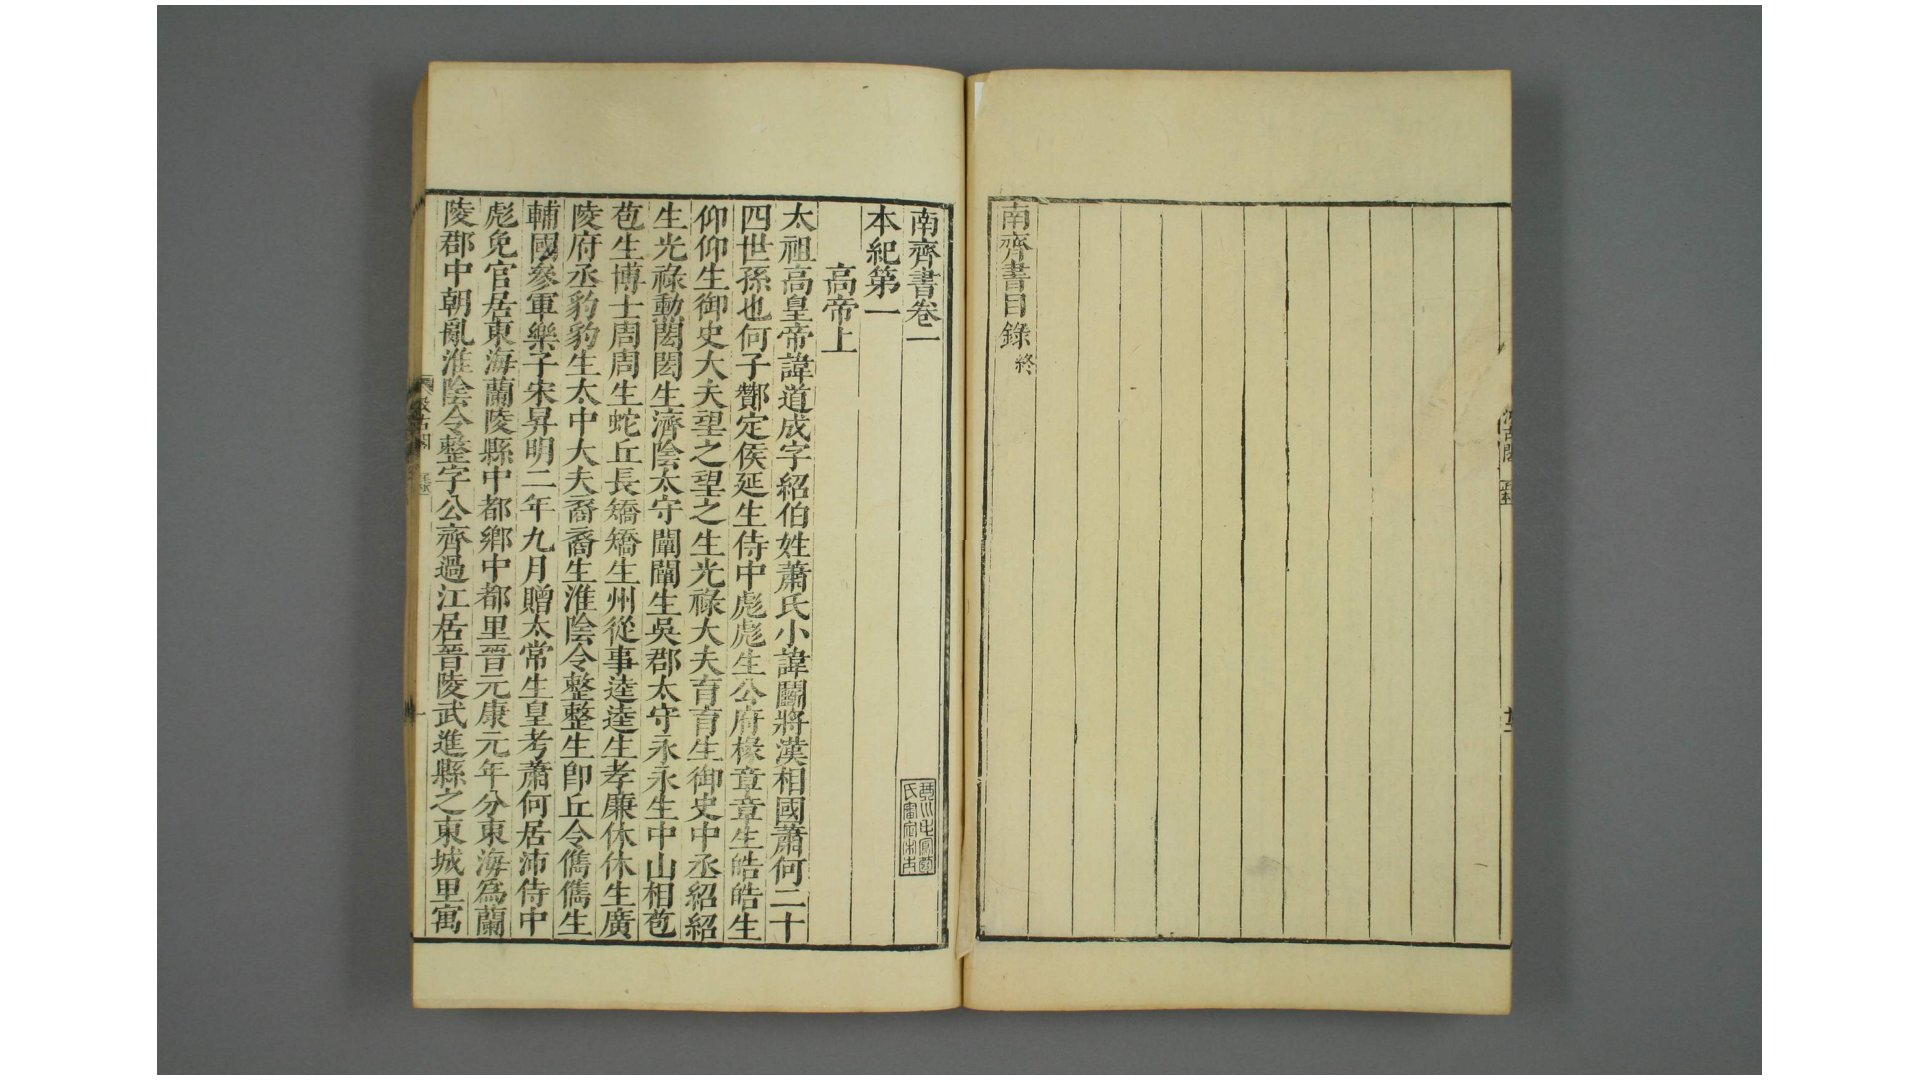 南齊書目錄終
南齊書卷一
本紀第一
高帝上
太祖高皇帝諱道成字紹伯姓蕭氏小諱鬭將漢相國蕭何二十
四世孫也何子酇定侯延生侍中彪彪生公府椽章章生皓皓生
仰仰生御史大夫望之望之生光祿大夫育育生御史中丞紹紹
生光祿勳閎閎生濟陰太守闡闡生吳郡太守永永生中山相苞
苞生博士周周生蛇丘長矯矯生州從事逵逵生孝廉休休生廣
陵府丞豹豹生太中大夫裔裔生淮陰令整整生卽丘令儁儁生
輔國參軍樂子宋昇明二年九月贈太常生皇考蕭何居沛侍中
彪免官居東海蘭陵縣中都鄉中都里晉元康元年分東海爲蘭
陵郡中朝亂淮陰令整字公齊過江居晉陵武進縣之東城里寓